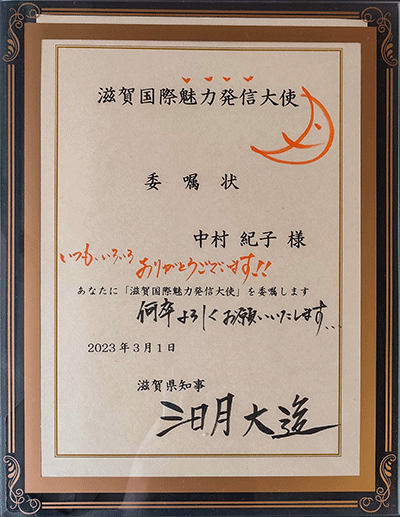 滋賀国際魅力発信大使
委嘱状
中村 紀子 様
いつも、いろいろ
ありがとうございます!!
あなたに「滋賀国際魅力発信大使」を委嘱します
何卒よろしくお願いいたします…
2023年3月1日
滋賀県知事
三日月大造